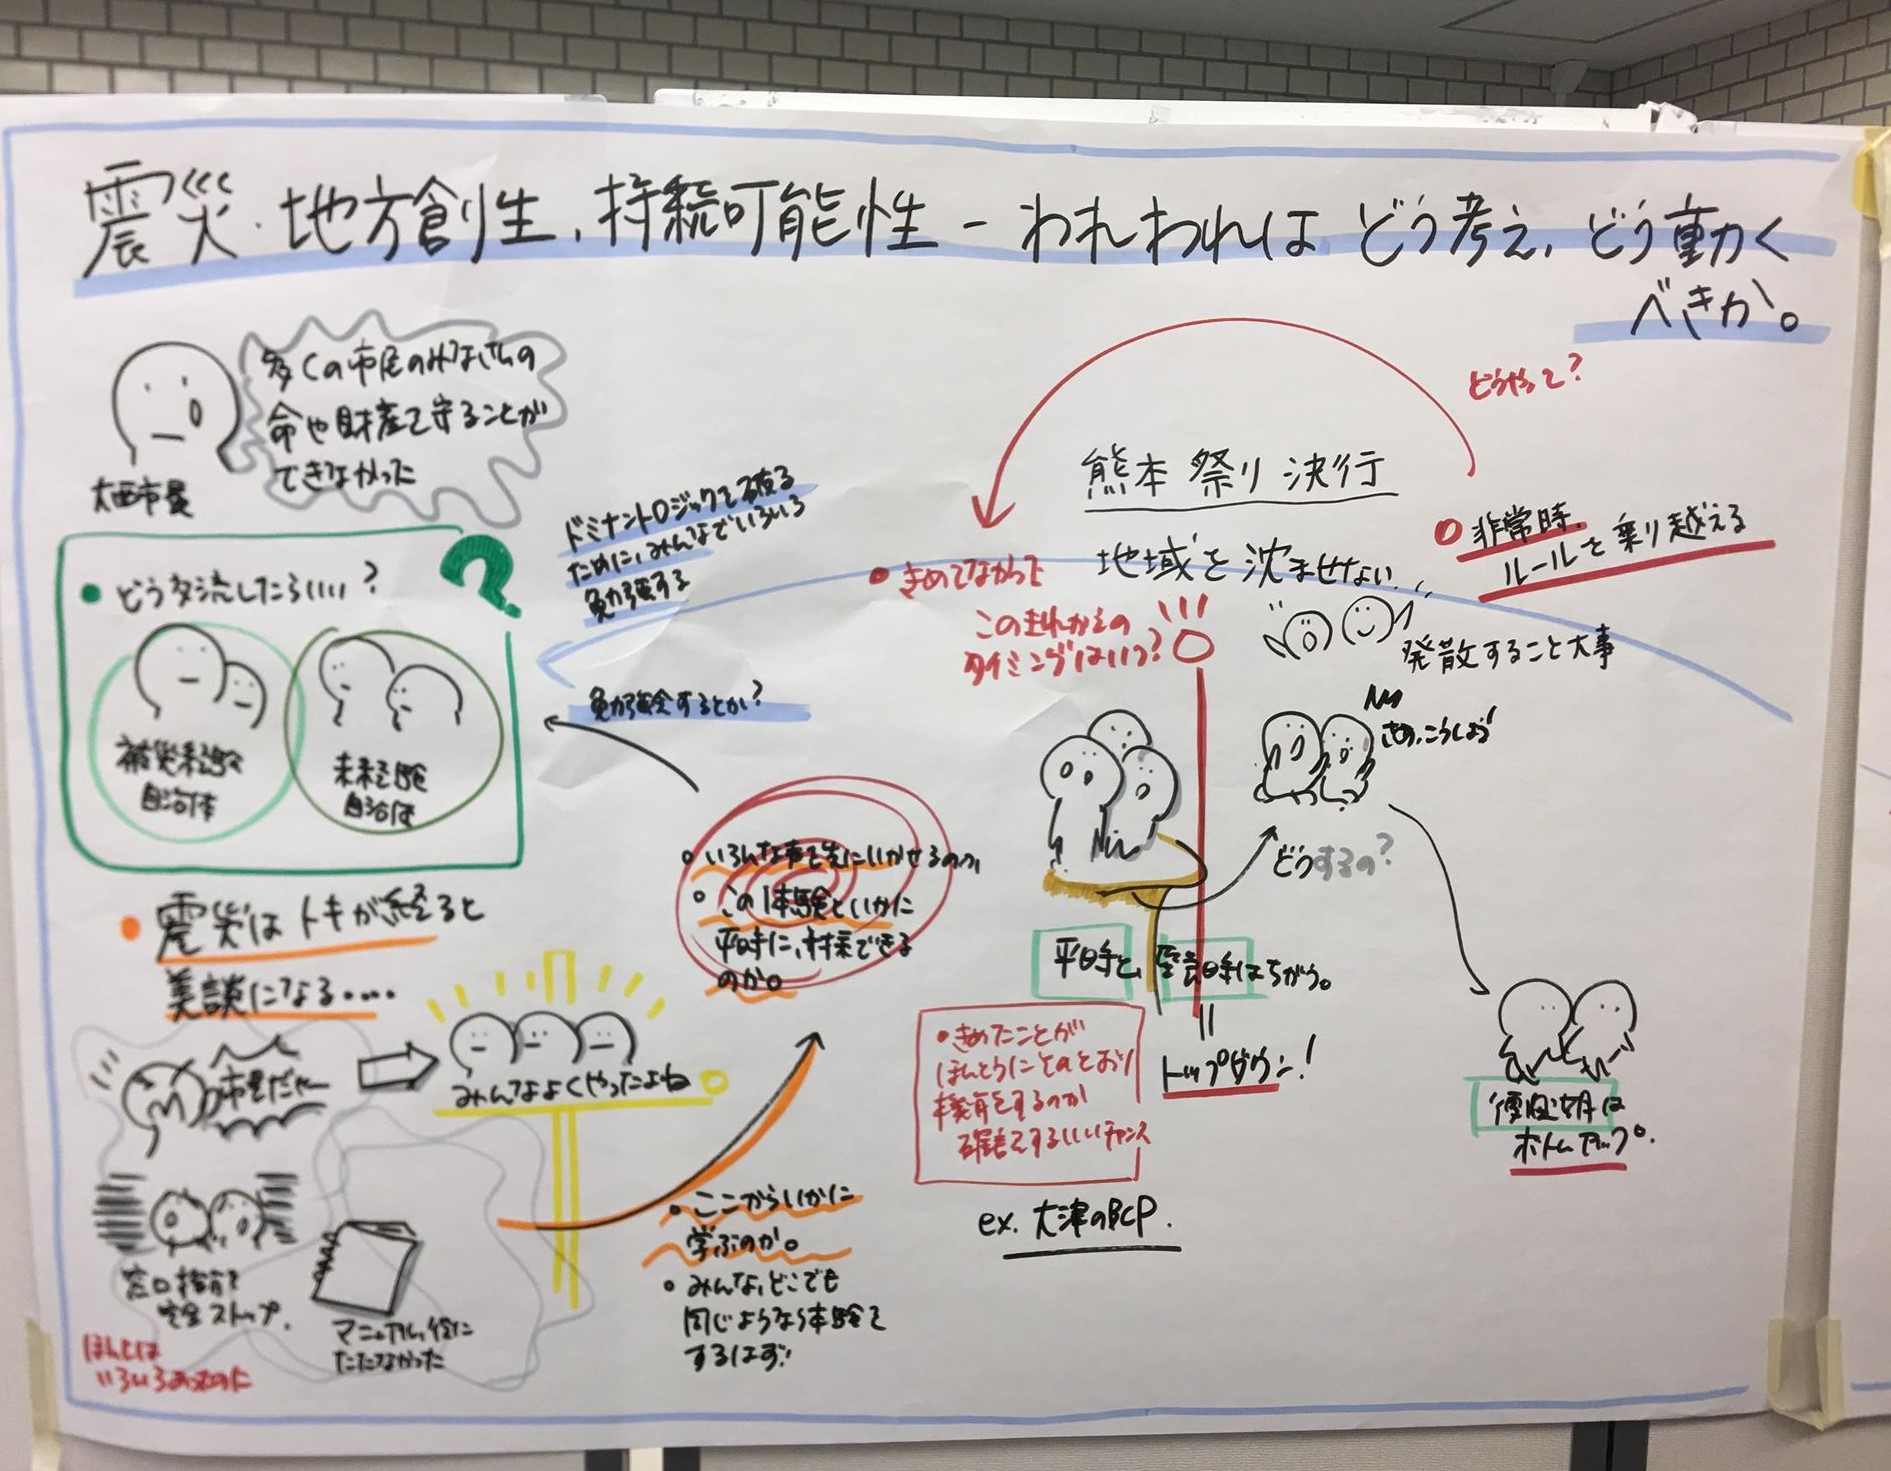 震災・地方創生、持続可能性 - われわれは どう考え、どう動く
べきか。
多くの市民のみなさんの
命や財産を守ることが
できなかった
大西市長
どう交流したらいい?
?
被災経験
自治体
未経験
自治体
ドミナントロジックを破る
ために、みんなでいろいろ
勉強する
勉強会するとか?
震災はトキが経ると
美談になる....
市長だゃー
みんなよくやったよね
窓口機能
完全ストップ.
マニュアル、役に
たたなかった
ほんとは
いろいろあったのに
いろんな声を先にいかせるのか、
この体験をいかに
平時に、対策できる
のか。
ここからいかに
学ぶのか。
みんな、どこでも
同じような体験を
するはず!
どうやって?
熊本 祭り 決行
地域を沈ませない
非常時、
ルールを乗り越える
きめてなかった
このきれかえの
タイミングはいつ?
発散すること大事
さあ、こうしよう
どうするの?
平時と、緊急時はちがう。
トップダウン!
復興期は
ボトムアップ。
きめたことが
ほんとうにそのとおり
機能するのか
確認するいいチャンス
ex. 大津のBCP.